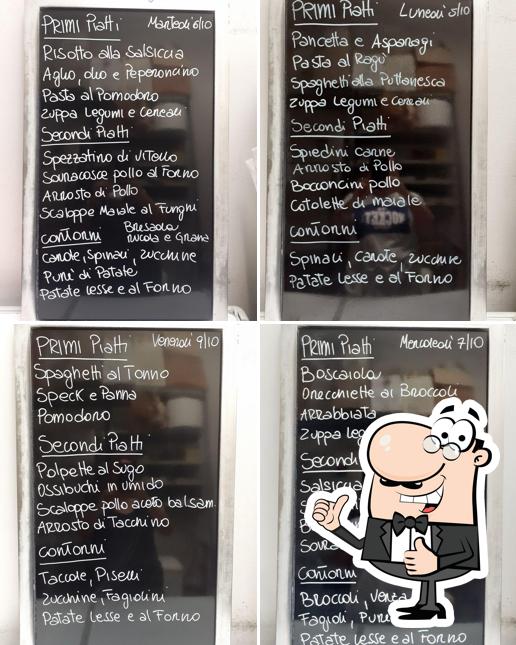 PRIMI Piatti Martedì 6/10
Risotto alla Salsiccia
Aglio, olio e Peperoncino
Pasta al Pomodoro
Zuppa Legumi e Cereali
Secondi Piatti
Spezzatino di Vitello
Sovracosce pollo al Forno
Arrosto di Pollo
Scaloppe Maiale ai Funghi
Contorni Bresaola
rucola e Grana
Carote, Spinaci, Zucchine
Purè di Patate
Patate Lesse e al Forno
PRIMI Piatti Lunedì 5/10
Pancetta e Asparagi
Pasta al Ragù
Spaghetti alla Puttanesca
Zuppa Legumi e cereali
Secondi Piatti
Spiedini Carne
Arrosto di Pollo
Bocconcini pollo
Cotolette di maiale
Contorni
Spinaci, Carote, Zucchine
Patate Lesse e al Forno
PRIMI Piatti Venerdì 9/10
Spaghetti al Tonno
Speck e Panna
Pomodoro
Secondi Piatti
Polpette al Sugo
Ossibuchi in umido
Scaloppe pollo aceto balsam.
Arrosto di Tacchino
Contorni
Taccole, Piselli
Zucchine, Fagiolini
Patate Lesse e al Forno
PRIMI Piatti Mercoledì 7/10
Boscaiola
Orecchiette ai Broccoli
Arrabbiata
Zuppa
Secondi
Contorni
Broccoli, Verza
Fagioli,
Patate Lesse e al Forno